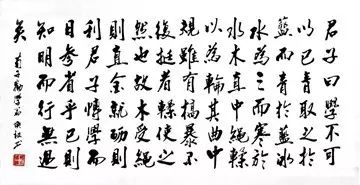 君子曰學不可
以已青取之於
藍而青於藍冰
水為之而寒於
水木直中繩輮
以為輪其曲中
規雖有槁暴不
復挺者輮使之
然也故木受繩
則直金就礪則
利君子博學而
日參省乎己則
知明而行無過
矣
荀子勸學